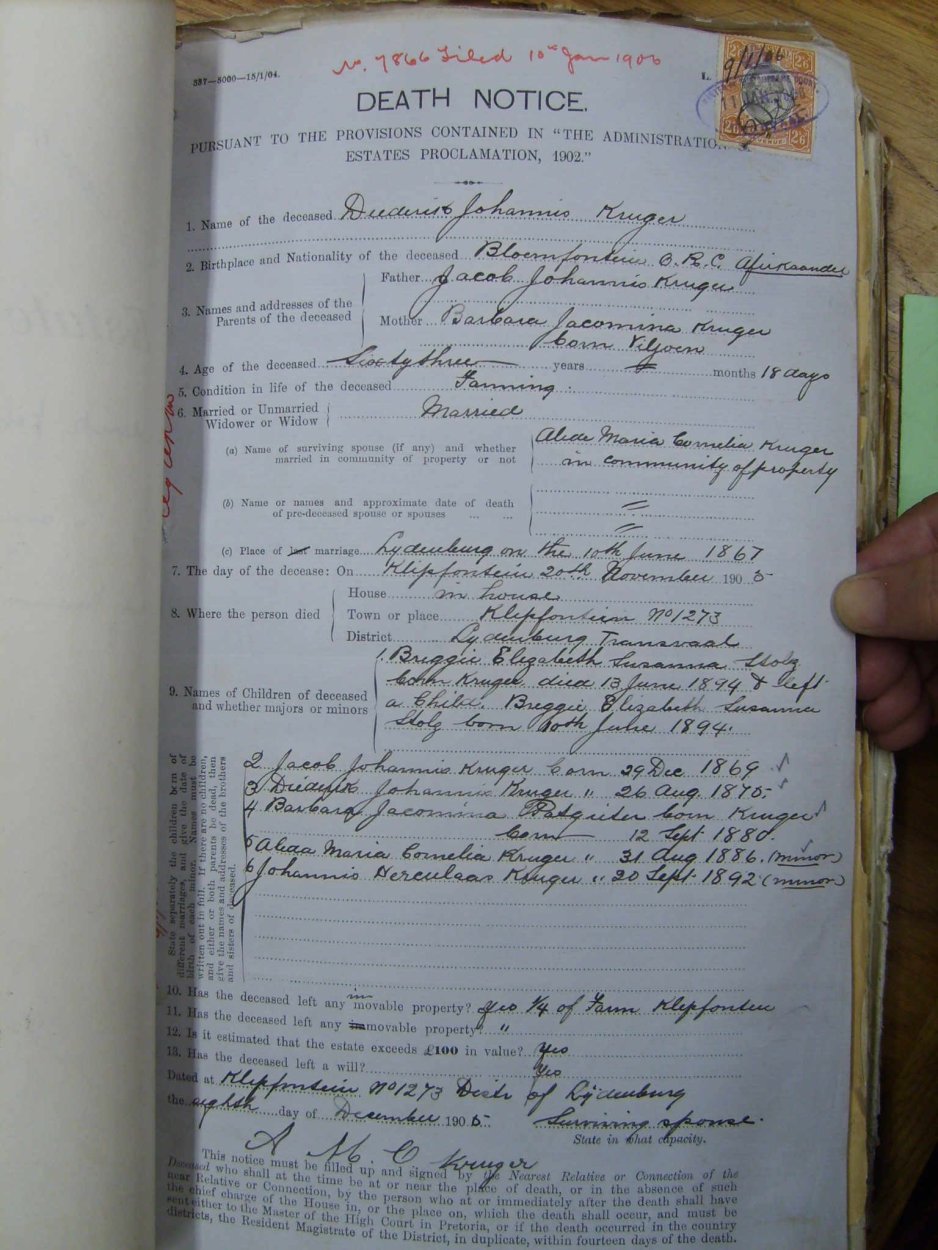 No. 7866 Filed 10th Jan 1906
337—5000—15/1/04.
L.
9/1/06
DEATH NOTICE.
PURSUANT TO THE PROVISIONS CONTAINED IN "THE ADMINISTRATION
ESTATES PROCLAMATION, 1902."
1. Name of the deceased Diederik Johannis Kruger
2. Birthplace and Nationality of the deceased Bloemfontein O.R.C. Afrikaander
3. Names and addresses of the Parents of the deceased
Father Jacob Johannis Kruger
Mother Barbara Jacomina Kruger
born Viljoen
4. Age of the deceased Sixtythree years months 18 days
5. Condition in life of the deceased Farming.
6. Married or Unmarried Widower or Widow Married
(a) Name of surviving spouse (if any) and whether married in community of property or not
Alida Maria Cornelia Kruger
in community of property
(b) Name or names and approximate date of death of pre-deceased spouse or spouses
(c) Place of last marriage Lydenburg on the 10th June 1867
7. The day of the decease: On Klipfontein 20th November 1905
8. Where the person died
House in house
Town or place Klipfontein No 1273
District Lydenburg Transvaal
9. Names of Children of deceased and whether majors or minors
1. Breggie Elizabeth Susanna Stolz
born Kruger died 13 June 1894 & left
a Child. Breggie Elizabeth Susanna
Stolz born 10th June 1894.
State separately the children born of
different marriages, and give the date of
birth of each minor. Names must be
written out in full. If there are no children,
and either or both parents be dead, then
give the names and addresses of the brothers
and sisters of deceased.
2 Jacob Johannis Kruger born 29 Dec 1869
3 Diederik Johannis Kruger " 26 Aug 1875
4 Barbara Jacomina Potgieter born Kruger
born 12 Sept 1880
5 Alida Maria Cornelia Kruger " 31 Aug 1886. (minor)
6 Johannis Herculaas Kruger " 20 Sept 1892 (minor)
10. Has the deceased left any immovable property? Yes 1/4 of Farm Klipfontein
11. Has the deceased left any immovable property? "
12. Is it estimated that the estate exceeds £100 in value? Yes
13. Has the deceased left a will? Yes
Dated at Klipfontein No 1273 Distr of Lydenburg
the eighth day of December 1905 Surviving spouse.
State in what capacity.
A M C Kruger
This notice must be filled up and signed by the Nearest Relative or Connection of the
Deceased who shall at the time be at or near the place of death, or in the absence of such
near Relative or Connection, by the person who at or immediately after the death shall have
the chief charge of the House in, or the place on, which the death shall occur, and must be
sent either to the Master of the High Court in Pretoria, or if the death occurred in the country
districts, the Resident Magistrate of the District, in duplicate, within fourteen days of the death.